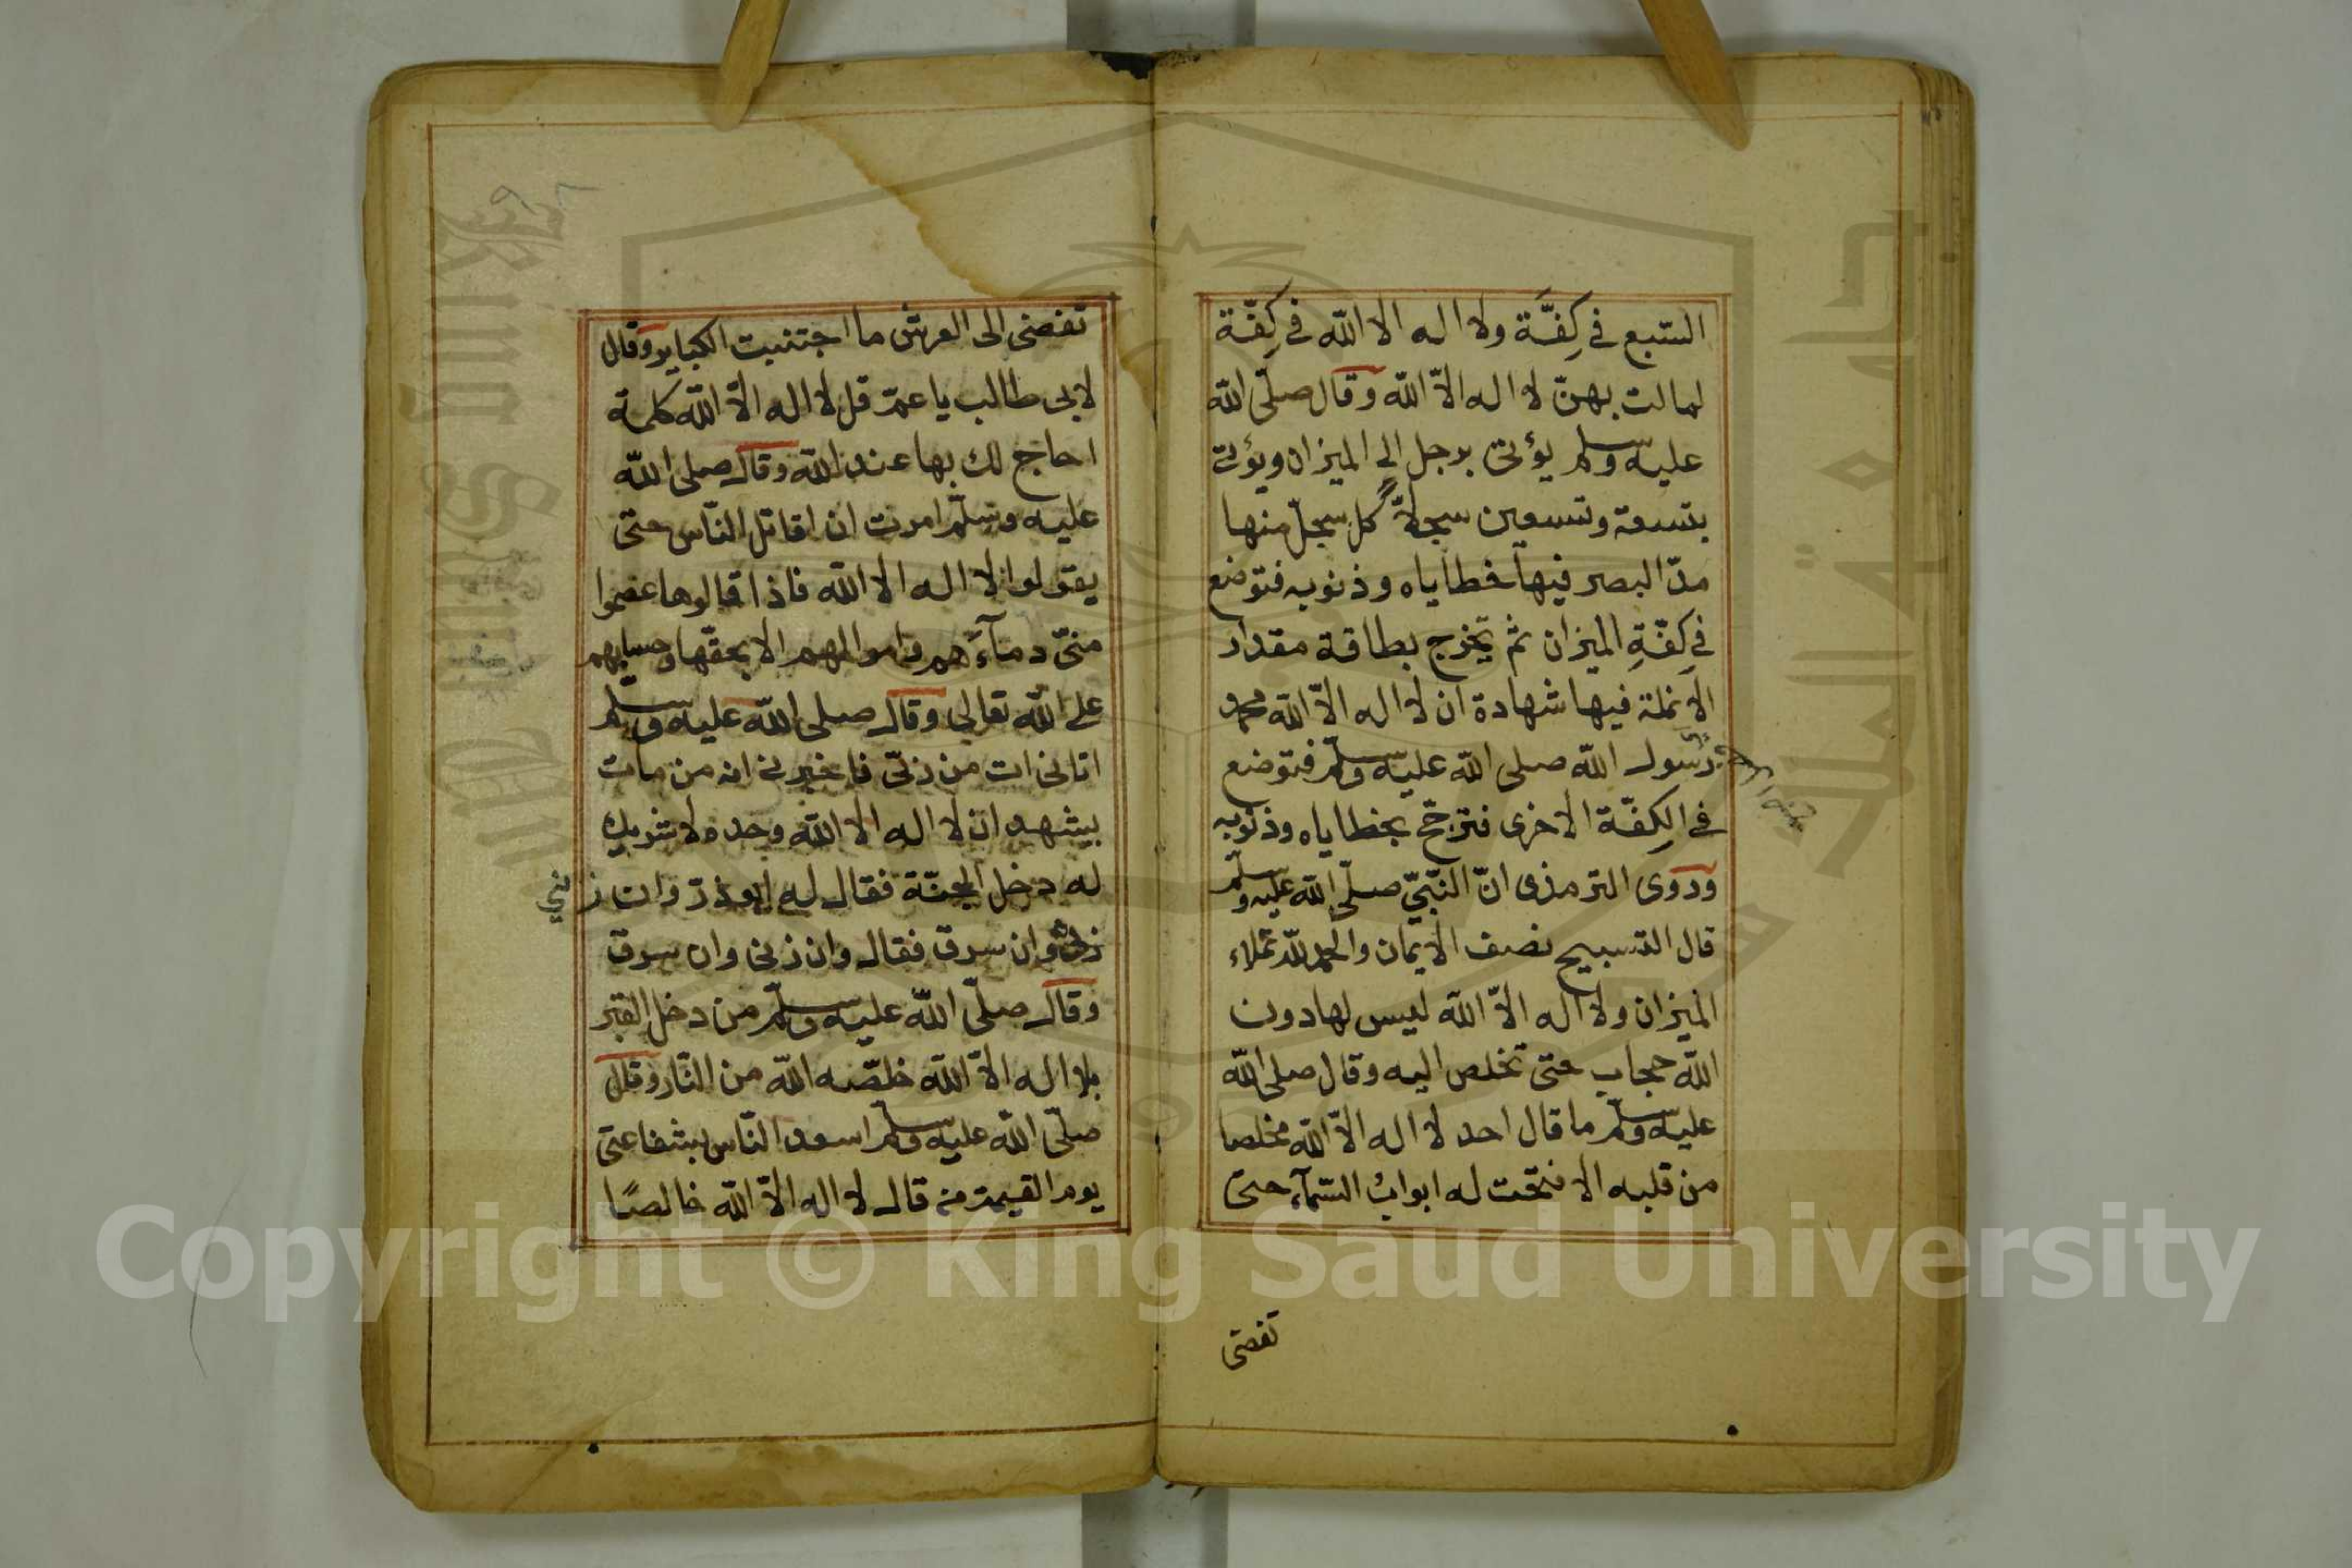 السّبع في كِفَّة ولا اله الا الله في كِفّة
لمالت بهنّ لا اله الاّ الله وقال صلّى الله
عليه وسلم يؤتى برجل الى الميزان ويؤتى
بتسعة وتسعين سجلاً كل سجلّ منها
مدّ البصر فيها خطاياه وذنوبه فتوضع
في كِفّةِ الميزان ثم يخرج بطاقة مقدار
الانملة فيها شهادة ان لا اله الاّ الله محمد
رسول الله صلى الله عليه وسلّم فتوضع
في الكِفّة الاخرى فترجّح بخطاياه وذنوبه
وروى الترمذى انّ النّبيّ صلّى الله عليه وسلّم
قال التسبيح نصف الايمان والحمد لله تملاء
الميزان ولا اله الاّ الله ليس لها دون
الله حجاب حتى تخلص اليه وقال صلى الله
عليه وسلّم ما قال احد لا اله الاّ الله مخلصا
من قلبه الا فتحت له ابوابُ السّمآء حتى
تفضى
تفضى الى العرش ما اجتنبت الكباير وقال
لابى طالب يا عمّ قل لا اله الاّ الله كلمة
احاج لك بها عند الله وقال صلى الله
عليه وسلّم امرت ان اقاتل النّاس حتى
يقولوا لا اله الا الله فاذا قالوها عصموا
منّى دمآءهم واموالهم الا بحقّها وحسابهم
على الله تعالى وقال صلى الله عليه وسلّم
اتانى ات من ربّى فاخبرنى انه من مات
يشهد ان لا اله الا الله وحده لا شريك
له دخل الجنّة فقال له ابو ذرّ وان زنى
زنى وان سرق فقال وان زنى وان سرق
وقال صلّى الله عليه وسلّم من دخل القبر
بلا اله الاّ الله خلّصه الله من النّار وقال
صلّى الله عليه وسلّم اسعد النّاس بشفاعتى
يوم القيمة من قال لا اله الاّ الله خالصًا
Copyright © King Saud University